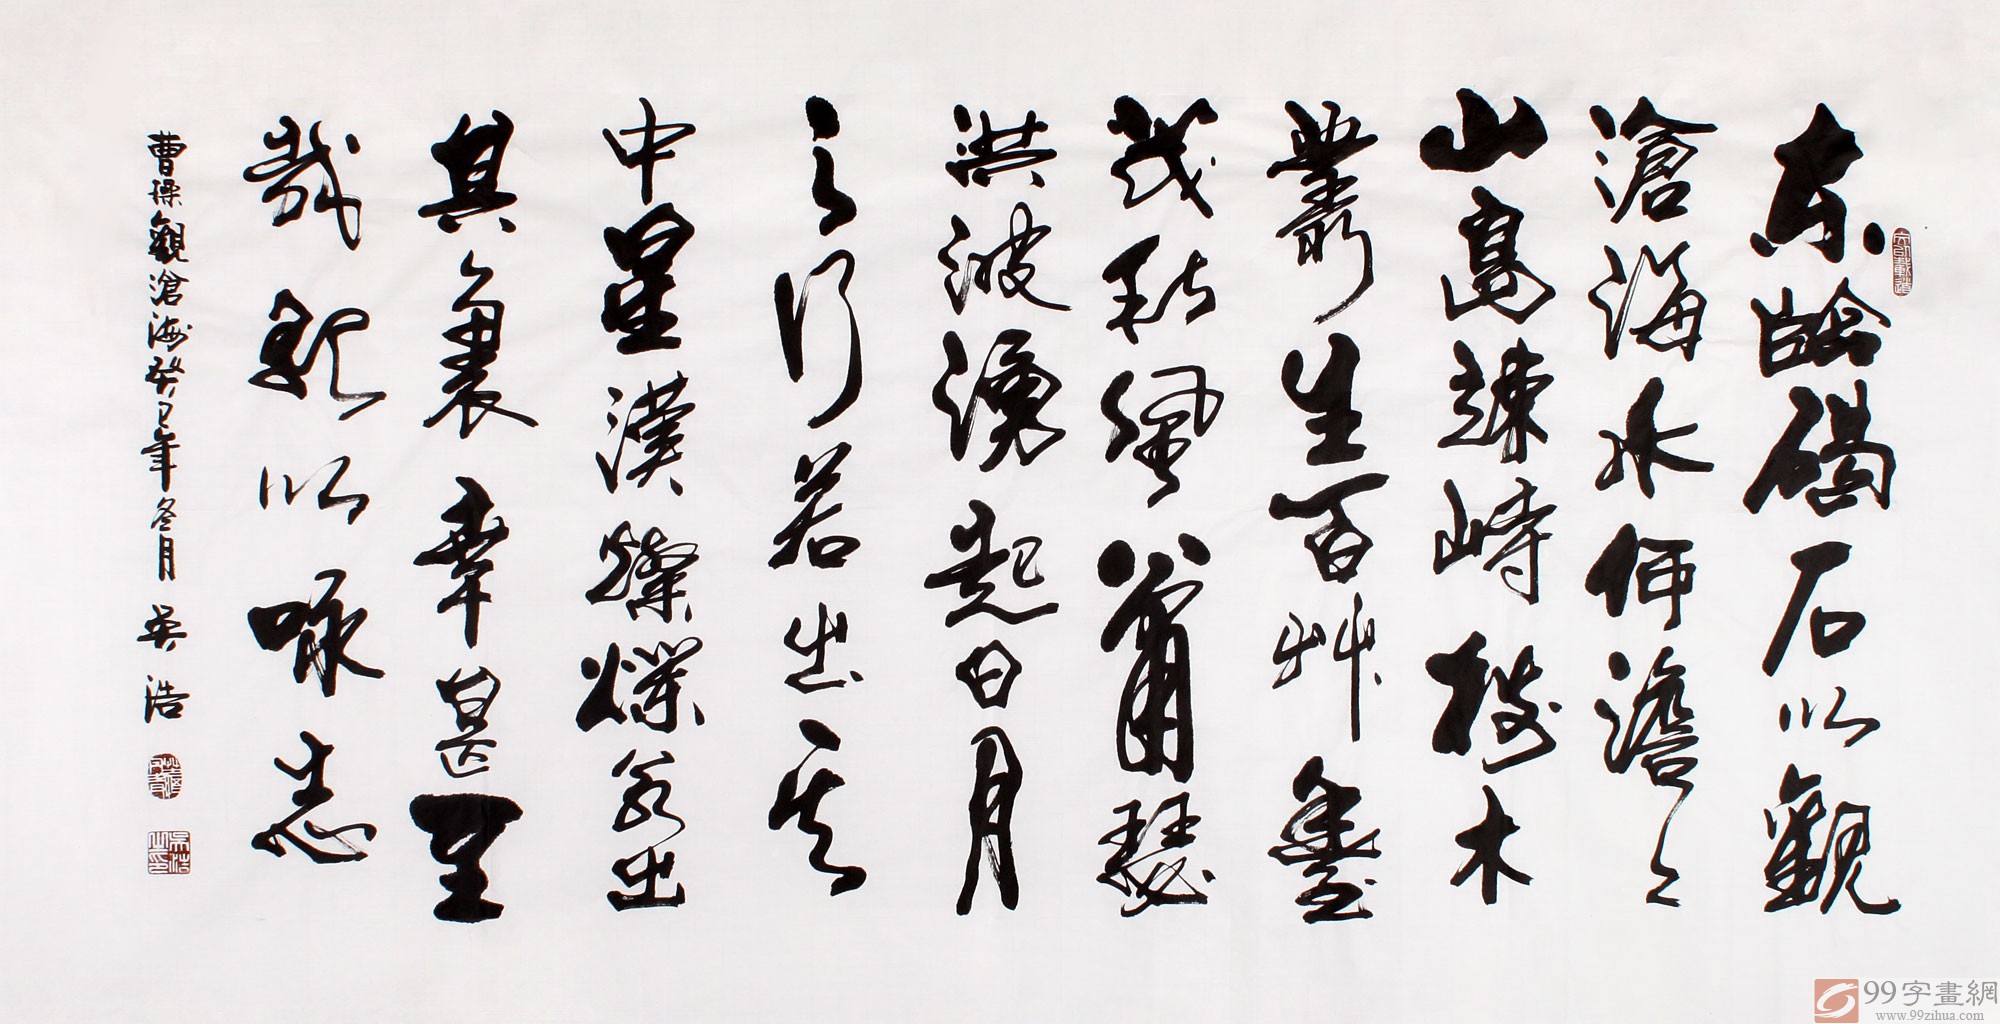 东臨碣石以觀
滄海水何澹〻
山島竦峙樹木
叢生百艸豐
茂秋風蕭瑟
洪波湧起日月
之行若出其
中星漢燦爛若出
其裏幸甚至
哉歌以咏志
曹操觀滄海癸巳年冬月吴浩
吴浩之印
99字畫網
www.99zihua.com